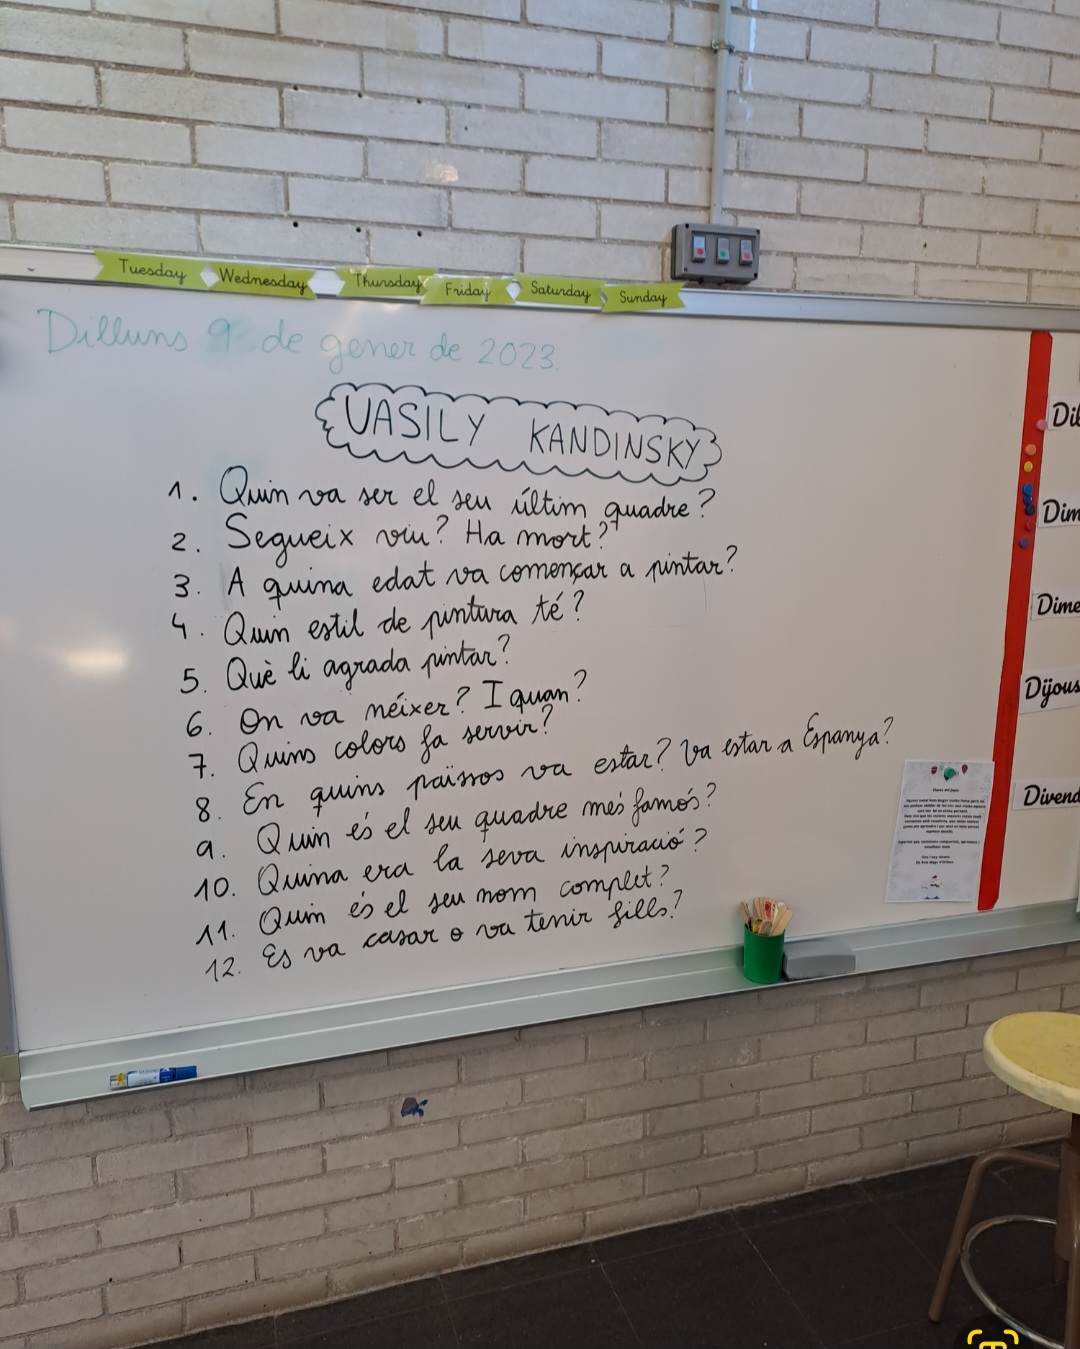 Tuesday Wednesday Thursday Friday Saturday Sunday
Dilluns 9 de gener de 2023
VASILY KANDINSKY
1. Quin va ser el seu últim quadre?
2. Segueix viu? Ha mort?
3. A quina edat va començar a pintar?
4. Quin estil de pintura té?
5. Què li agrada pintar?
6. On va néixer? I quan?
7. Quins colors fa servir?
8. En quins països va estar? Va estar a Espanya?
9. Quin és el seu quadre més famós?
10. Quina era la seva inspiració?
11. Quin és el seu nom complet?
12. Es va casar o va tenir fills?
Dijous